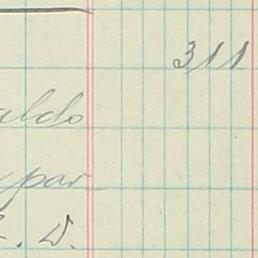 311
aldo
par
. W.